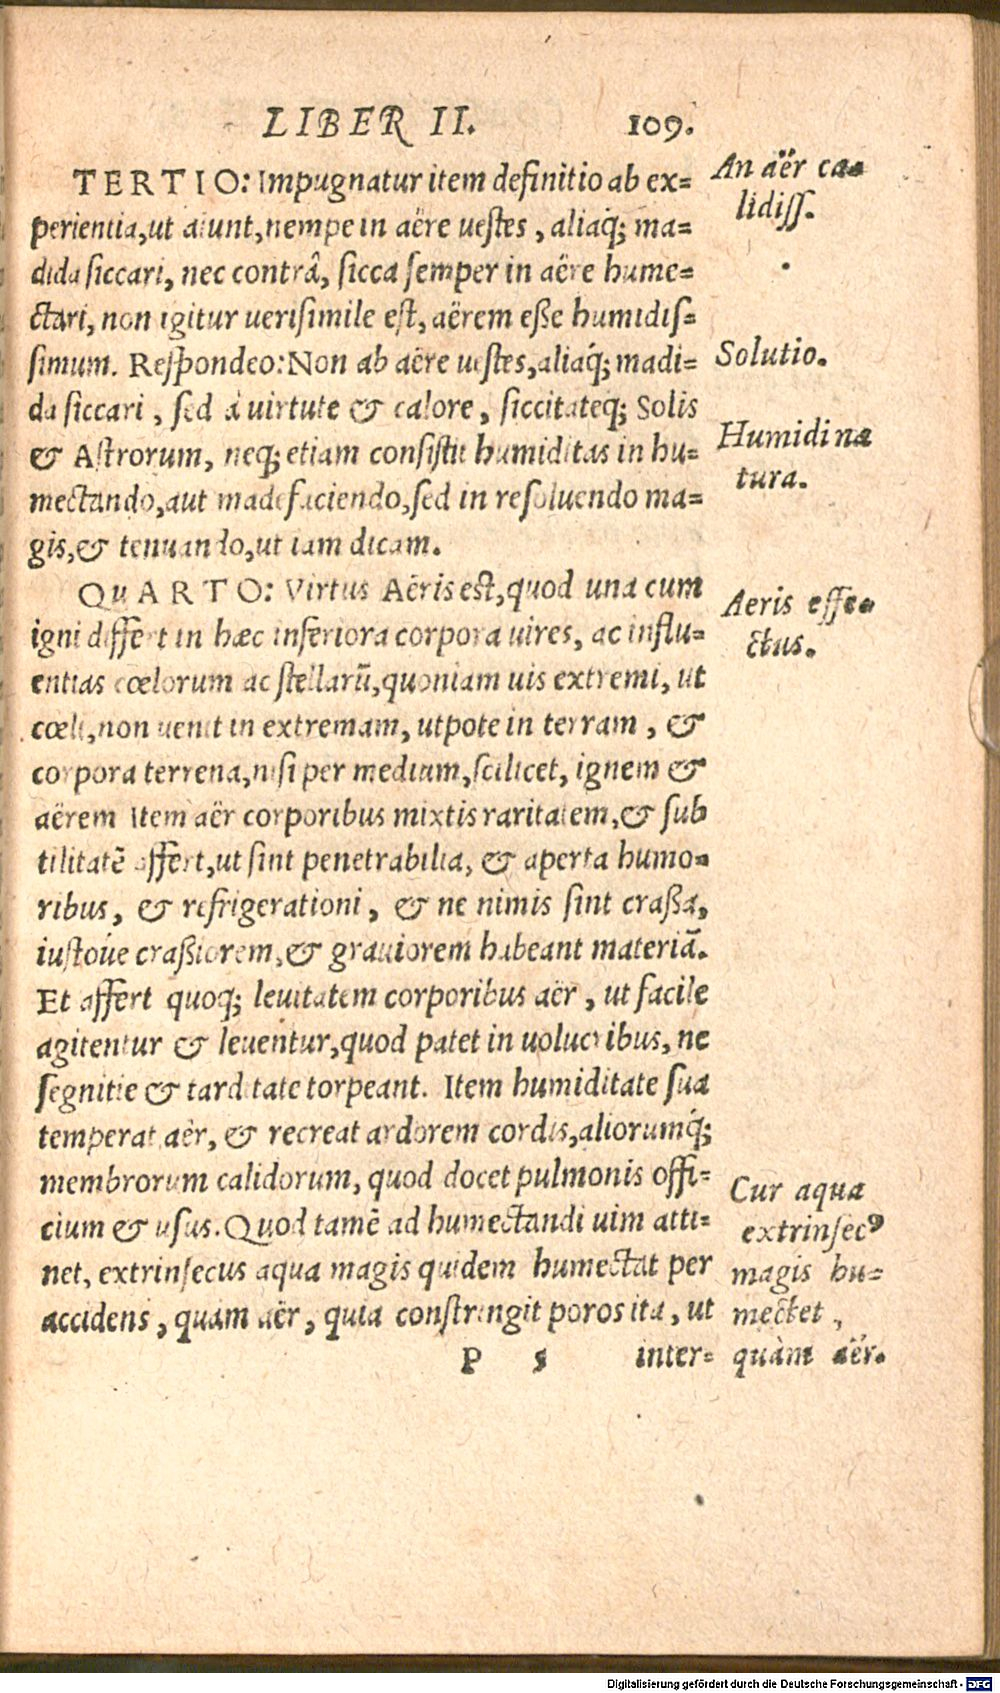 LIBER II. 109.
TERTIO: Impugnatur item definitio ab ex=
perientia, ut aiunt, nempe in aëre uestes, aliaq́; ma=
dida siccari, nec contrâ, sicca semper in aëre hume=
ctari, non igitur uerisimile est, aërem eße humidis=
simum. Respondeo: Non ab aëre uestes, aliaq́; madi=
da siccari, sed à uirtute & calore, siccitateq́; Solis
& Astrorum, neq; etiam consistit humiditas in hu=
mectando, aut madefaciendo, sed in resoluendo ma=
gis, & tenuando, ut iam dicam.
QuARTO: Virtus Aëris est, quod una cum
igni differt in hæc inferiora corpora uires, ac influ=
entias cœlorum ac stellarũ, quoniam uis extremi, ut
cœli, non uenit in extremam, utpote in terram, &
corpora terrena, nisi per medium, scilicet, ignem &
aërem Item aër corporibus mixtis raritatem, & sub
tilitatẽ affert, ut sint penetrabilia, & aperta humo=
ribus, & refrigerationi, & ne nimis sint craßa,
iustoúe craßiorem, & grauiorem habeant materiã.
Et affert quoq; leuitatem corporibus aër, ut facile
agitentur & leuentur, quod patet in uolucribus, ne
segnitie & tarditate torpeant. Item humiditate sua
temperat aër, & recreat ardorem cordis, aliorumq́;
membrorum calidorum, quod docet pulmonis offi=
cium & usus. Quod tamẽ ad humectandi uim atti=
net, extrinsecus aqua magis quidem humectat per
accidens, quam aër, quia constringit poros ita, ut
P 5 inter=
An aër ca=
lidiss.
Solutio.
Humidi na
tura.
Aeris effe=
ctus.
Cur aqua
extrinsecꝰ
magis hu=
mectet,
quàm aër.
Digitalisierung gefördert durch die Deutsche Forschungsgemeinschaft - DFG